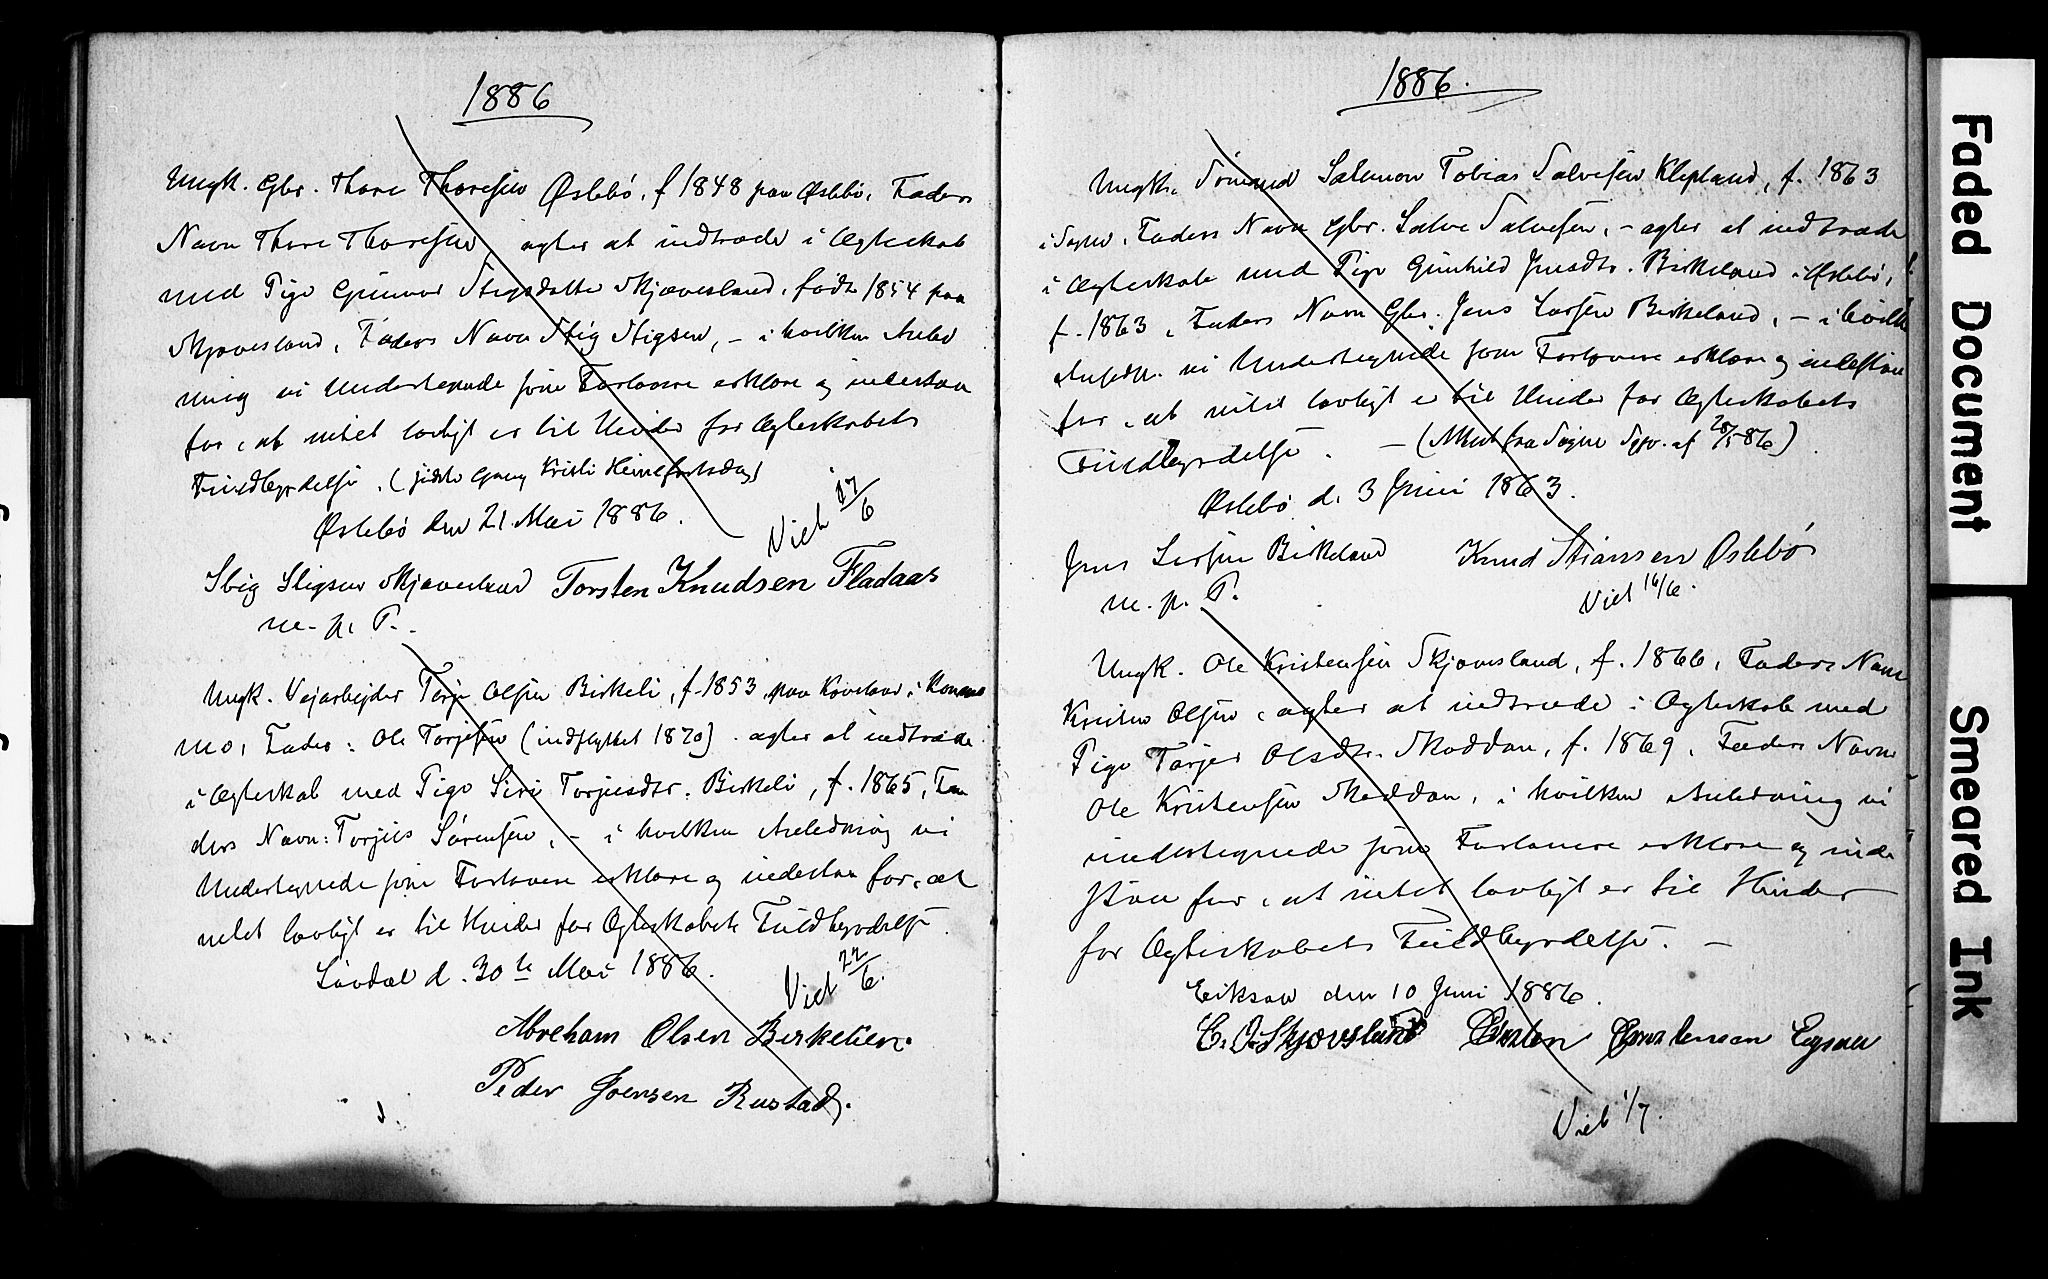 1886
Ungk. Gbr. Thore Thoresen Øslebö, f 1848 paa Øslebö, Faders
Navn Thore Thoresen, agter at indtræde i Ægteskab
med Pige Gunvor Stigsdatter Skjævesland, födt 1854 paa
Skjævesland, Faders Navn Stig Stigsen, – i hvilken Anled
ning vi Undertegnede som Forlovere erklære og indestaa
for, at intet lovligt er til Hinder for Ægteskabets
Fuldbyrdelse. (sidste Gang
Øslebö den 21 Mai 1886.
Viet 27/6
Stig Stigsen Skjævesland Torsten Knudsen Fladaas
m. p. P.
Ungk. Vejarbejder Terje Olsen Birkeli, f. 1853 paa Koveland i
mo, Fader: Ole Torjesen (indflyttet 1870) agter at indtræde
i Ægteskab med Pige Siri Torjusdtr. Birkeli, f. 1865, Fa
ders Navn: Torjus Sörensen, – i hvilken Anledning vi
Undertegnede som Forlovere erklære og indestaa for, at
intet lovligt er til Hinder for Ægteskabets Fuldbyrdelse.
Lövdal d. 30te Mai 1886.
Viet 22/6.
Abreham Olsen Birkelien.
Peder Joensen Rustad.
1886.
Ungk. Sömand Salemon Tobias Salvesen Klepland, f. 1863
i Sogne, Faders Navn Gbr. Salve Salvesen, – agter at indtræde
i Ægteskab med Pige Gunhild Jensdtr. Birkeland i Øslebö,
f. 1863, Faders Navn Gbr. Jens Larsen Birkeland, – i hvilk
Anledn. vi Undertegnede som Forlovere erklære og indestaa
for, at intet lovligt er til Hinder for Ægteskabets
Fuldbyrdelse. – (Attest fra Sogne Spr. af 28/5 86)
Øslebö d. 3 Juni 1863.
Jens Larsen Birkeland Knud Stianssen Øslebö
m. p. P.
Viet 16/6.
Ungk. Ole Kristensen Skjævesland, f. 1866, Faders Navn
Kristen Olsen, agter at indtræde i Ægteskab med
Pige Torjer Olsdtr. Moddan, f. 1869, Faders Navn
Ole Kristensen Moddan, i hvilken Anledning vi
undertegnede som Forlovere erklære og inde
staa for, at intet lovligt er til Hinder
for Ægteskabets Fuldbyrdelse. –
Eiksaa den 10 Juni 1886.
C. O. Skjøvsland
Viet 1/7.
Faded Document
Smeared Ink